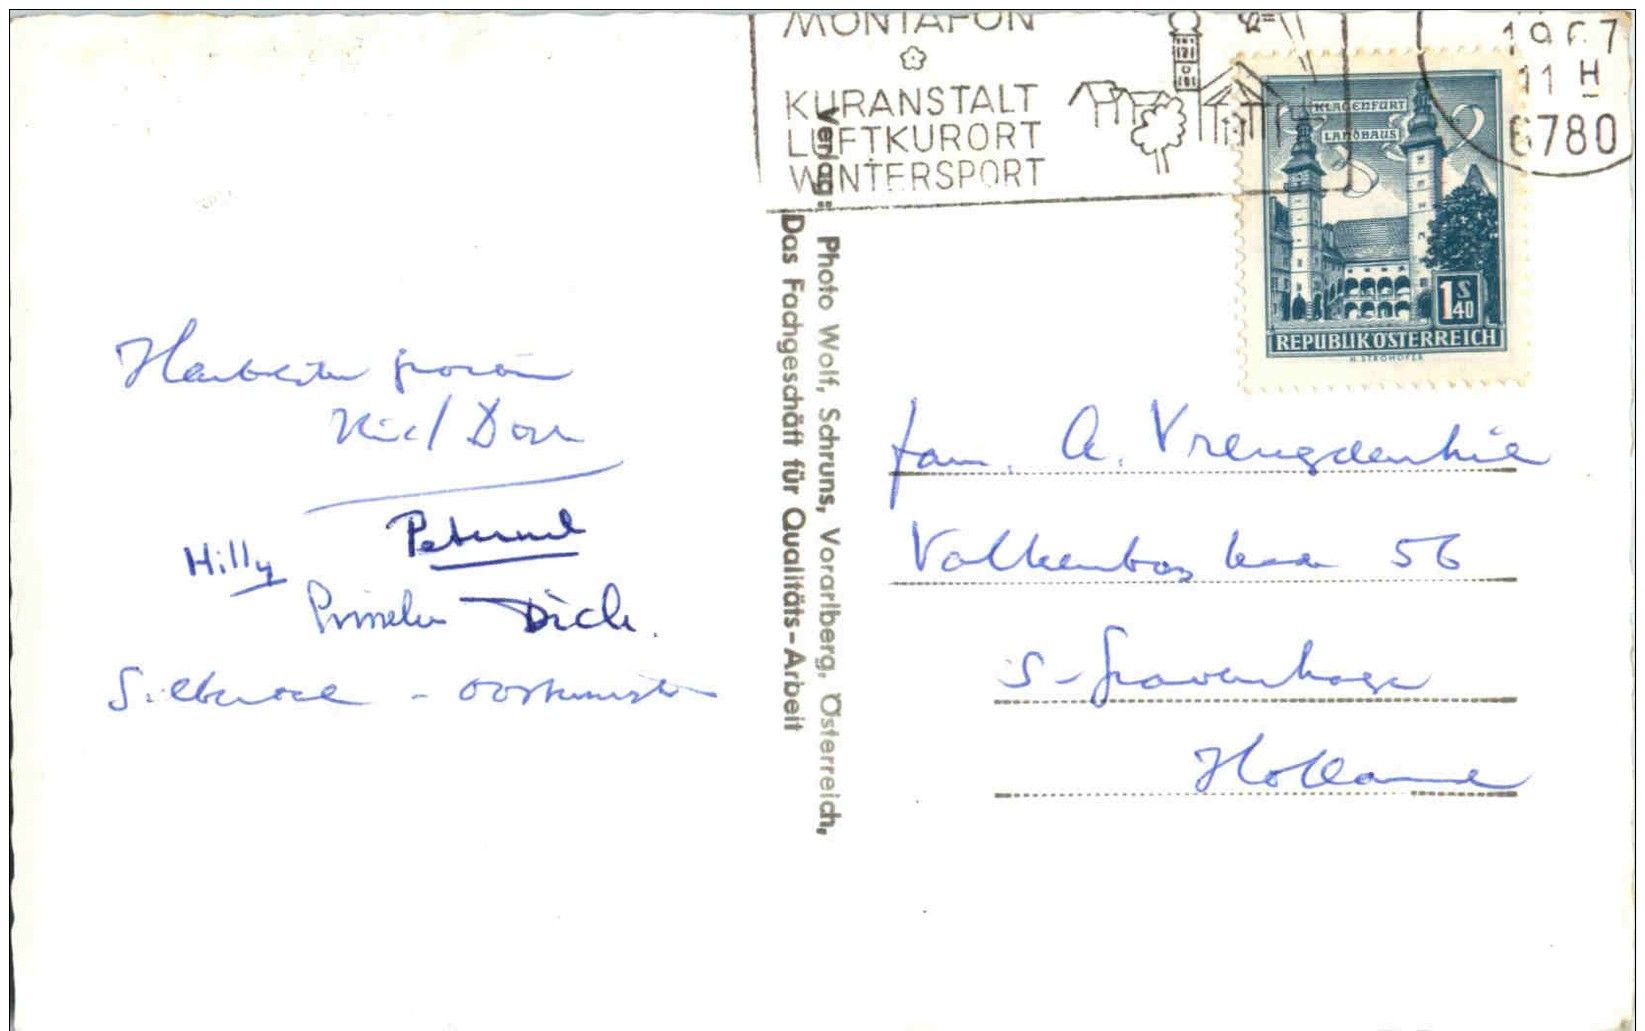 MONTAFON
KURANSTALT
LUFTKURORT
WINTERSPORT
1967
11 H
6780
KLAGENFURT
LANDHAUS
1 S 40
REPUBLIK ÖSTERREICH
H. STROHOFER
Verlag: Photo Wolf, Schruns, Vorarlberg, Österreich,
Das Fachgeschäft für Qualitäts-Arbeit
Hilly
Dick.
fam. A. Vreugdenhil
Valkenbos laan 56
S-Gravenhage
Holland